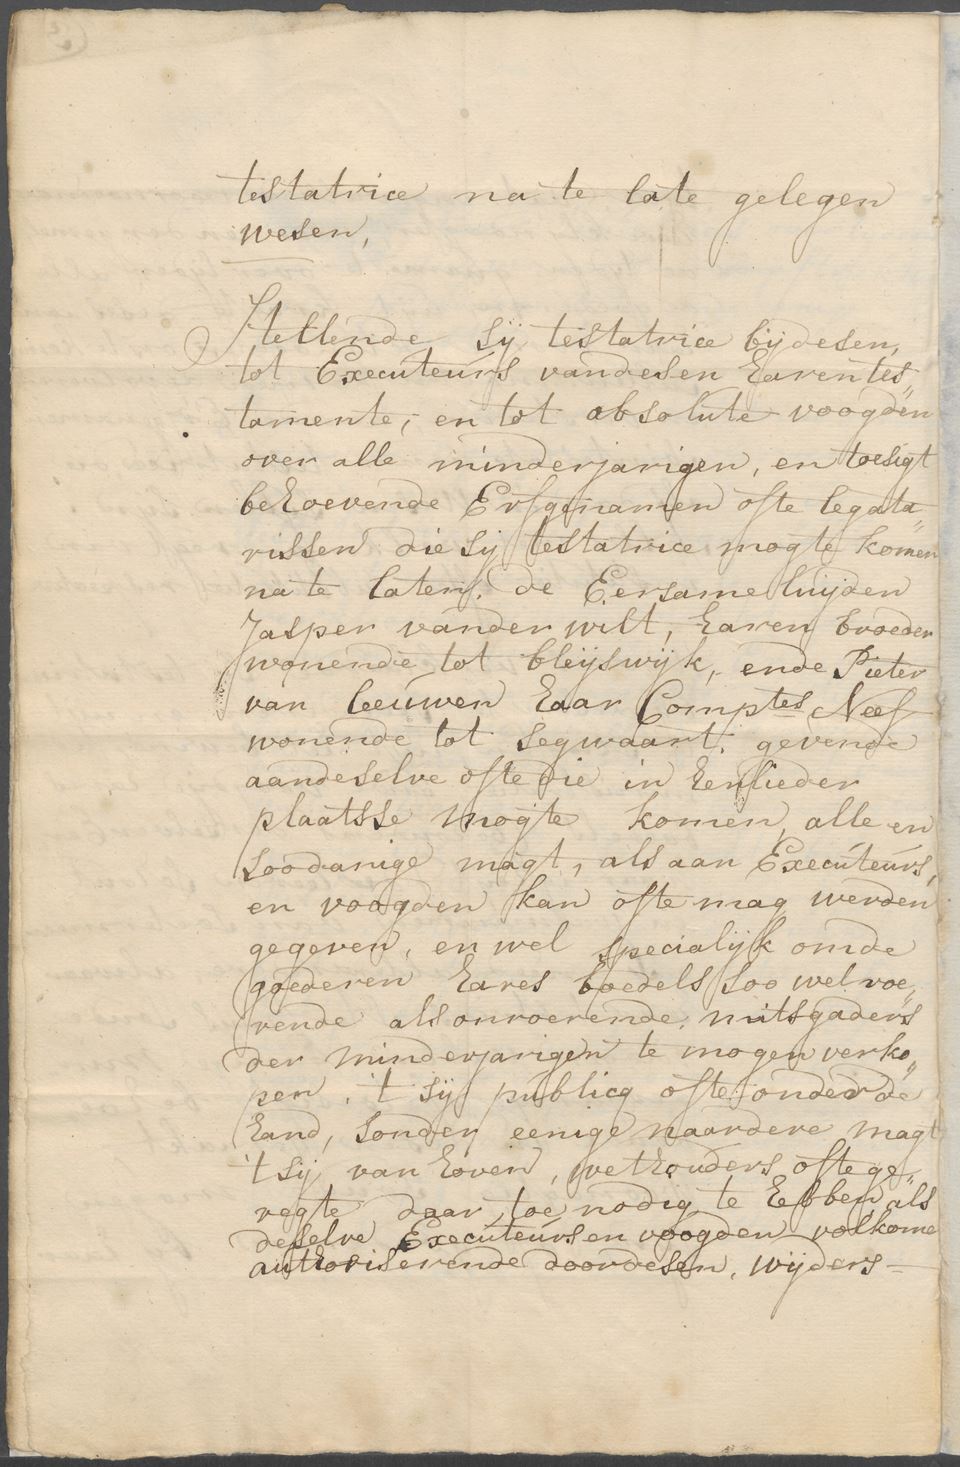 testatrice na te late gelegen
wesen,
Stellende sij testatrice bij desen,
tot Executeurs van desen haren tes„
tamente, en tot absolute voogden
over alle minderjarigen, en toesigt
behoevende Erfgenamen ofte legata„
rissen die sij testatrice mogte komen
na te laten, de Eersame luijden
Jasper vander wilt, haren broeder
wonende tot bleijswijk, ende Pieter
van leeuwen haar Comptes Neef
wonende tot segwaart, gevende
aan deselve ofte die in henlieder
plaatsse mogte komen, alle en
soodanige magt, als aan Executeurs,
en voogden kan ofte mag werden
gegeven, en wel specialijk om de
goederen hares boedels soo wel roe„
rende als onroerende, mitsgaders
der minderjarigen te mogen verko„
pen, 't sij publicq ofte onder de
hand, sonder eenige naardere magt
't sij van hoven, wethouders ofte ge„
regte daar toe nodig te hebben, als
deselve Executeurs en voogden volkome
authoriserende door desen, wijders